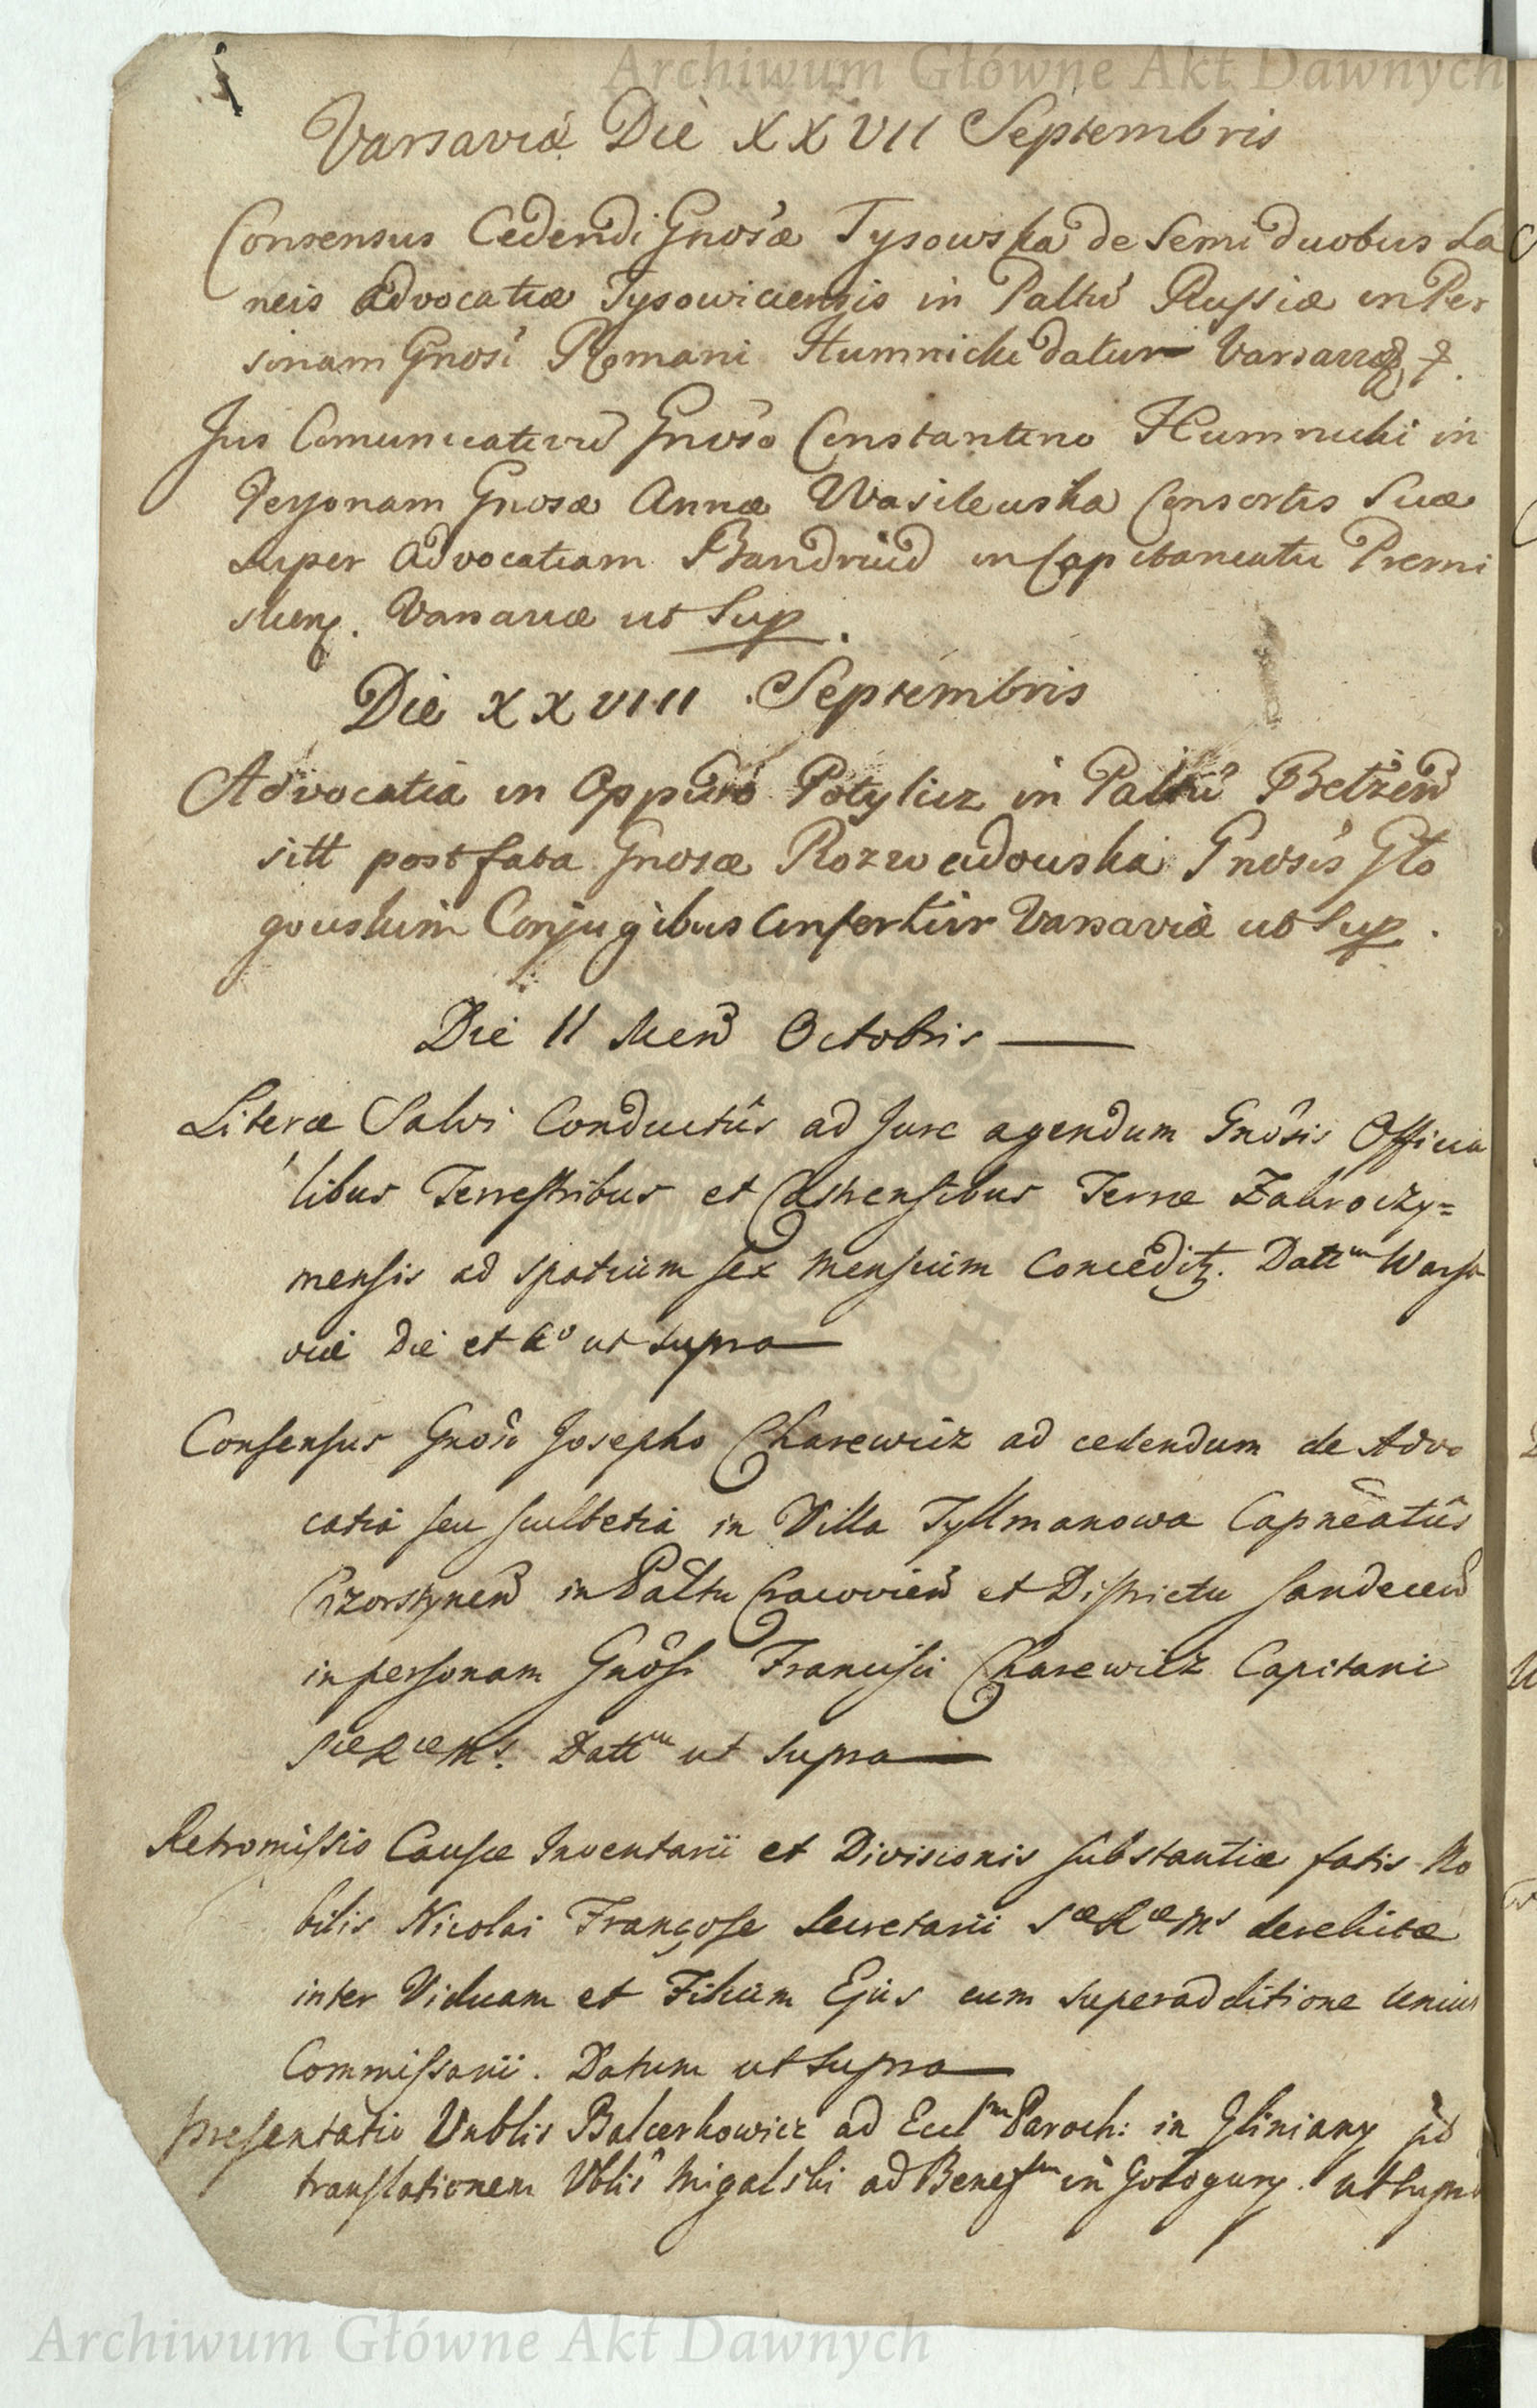 Archiwum Główne Akt Dawnych
Varsaviæ Die XXVII Septembris
Consensus Cedendi Gnosæ Tysowska de Semi duobus La
neis advocatiæ Tysowiciensis in Paltu Russiæ in Per
sonam Gnosi Romani Humnicki datur Varsaviæ
Jus Comunicativu Gnoso Constantino Humnicki in
Personam Gnosæ Annæ Wasilewska Consortis Suæ
super advocatiam Bandrud in Capitaneatu Premi
slien. Varsaviæ ut Sup.
Die XXVIII Septembris
Advocatia in Oppido Potylicz in Paltu Belzen
sitt post fata Gnosæ Rozwadowska Gnosis Gło
gowskim Conjugibus Confertur Varsaviæ ut Sup.
Die 11 Men Octobris
Literæ Salvi Conductûs ad Jure agendum Gnôsis Officia
libus Terrestribus et Castrensibus Terræ Zakroczy=
mensis ad spatium sex Mensium Conceditz. Dattm Warsa
viæ Die et Ao ut supra
Consensus Gnoso Josepho Charewicz ad cedendum de Advo
catia seu scultetia in Villa Tyllmanowa Capneatûs
Czorstynen in Paltu Cracovien et Districtu Sandecen
in personam Gnôsi Francisci Charewicz Capitani
SæRæMs. Dattm ut supra
Retromissio Causæ Inventarii et Divisionis substantiæ fatis No
bilis Nicolai Françose Secretarii SæRæMs derelictæ
inter Viduam et Filium Ejus cum superadditione unius
Commissarii. Datum ut supra
Presentatio Vnblis Balcerkowicz ad Eccl Paroch: in Gliniany pt
translationem Vblis Migalski ad Benef in Gołogury. ut supra
Archiwum Główne Akt Dawnych